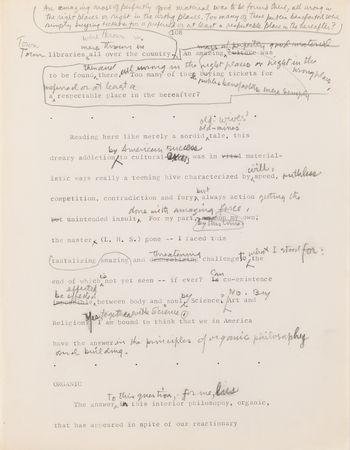 An amazing mass of perfectly good material was to be found there, all wrong in
the right places or right in the wrong places. Too many of these public benefactors were
simply buying tickets for a preferred or at least a respectable place in the hereafter?
108
Town
Town libraries all over the country. An amazing was
mass of perfectly good material
to be found there, all wrong in the right places or right in the
wrong places
Too many of these buying tickets for
public benefactors were simply
preferred or at least a
a respectable place in the hereafter?
old-wives'
Reading here like merely a sordid tale, this
by American success
dreary addiction to cultural was in material-
istic ears really a teeming hive characterized by speed, will, ruthless
but
competition, contradiction and fury, always action getting the
but unintended insult. For my part, on my own,
done with amazing force,
by this time
the master (L. H. S.) gone -- I faced this
tantalizing amazing and threatening challenge to what I stood for:
end of which is not yet seen -- if ever? Can co-existence
be effected
between body and soul, by Science, Art and
No. By
Religion together with Science. I am bound to think that we in America
have the answer in the principles of organic philosophy
and building.
ORGANIC
To this question, for me, lies
The answer in this interior philosophy, organic,
that has appeared in spite of our reactionary